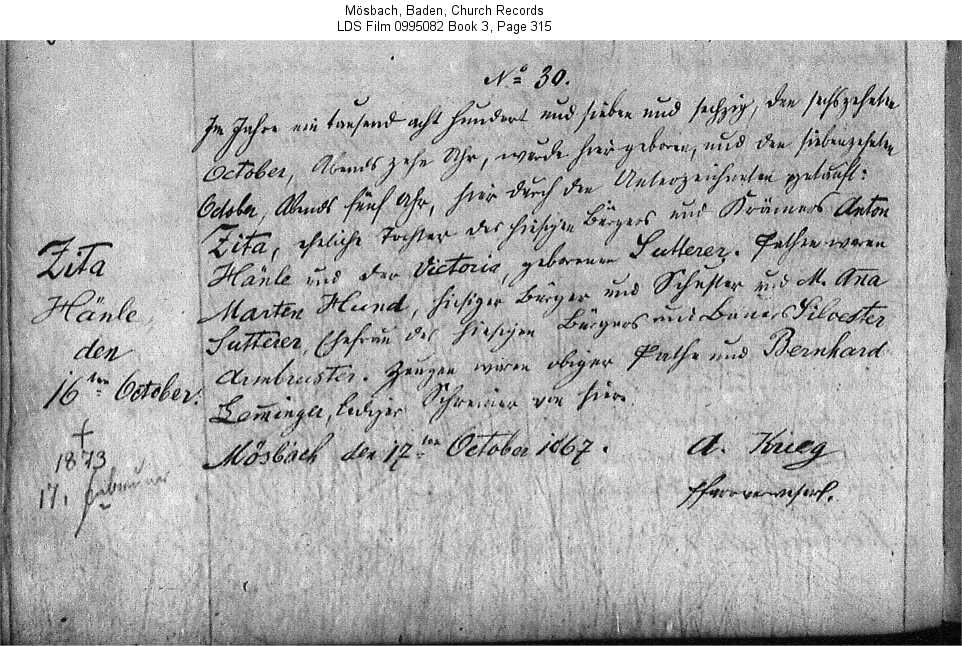 Mösbach, Baden, Church Records
LDS Film 0995082 Book 3, Page 315
No 30.
Im Jahre ein tausend acht hundert und sieben und sechzig, den sechszehnten
October, Abends zehn Uhr, wurde hier geboren, und den siebenzehnten
October, Abends fünf Uhr, hier durch den Unterzeichneten getauft:
Zita, eheliche Tochter des hiesigen Bürgers und Krämers Anton
Hänle und der Victoria, geborenen Sutterer. Pathen waren
Marten Hund, hiesiger Bürger und Schuster und M. Ana
Sutterer, Ehefrau des hiesigen Bürgers und Bauers Silvester
Armbruster. Zeugen waren obiger Pathe und Bernhard
lediger Schreiner von hier.
Mösbach den 17ten October 1867.
A. Krieg
Pfarrverweser.
Zita
Hänle
den
16ten October.
†
1873
17. Februar